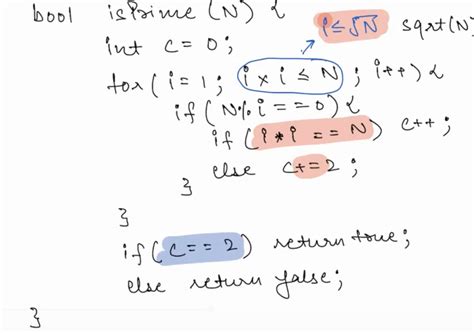 bool isPrime (N) {
i≤√N sqrt(N)
int c=0;
for( i=1; i×i ≤ N ; i++) {
if( N%i==0) {
if( i*i == N) c++;
else c+=2;
}
}
if( c==2) return true;
else return false;
}